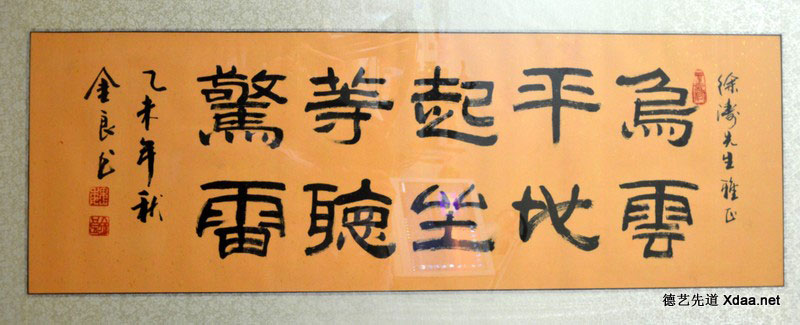 徐涛先生雅正
烏雲
平地
起坐
等聽
驚雷
乙未年秋
金良书
德艺先道 Xdaa.net